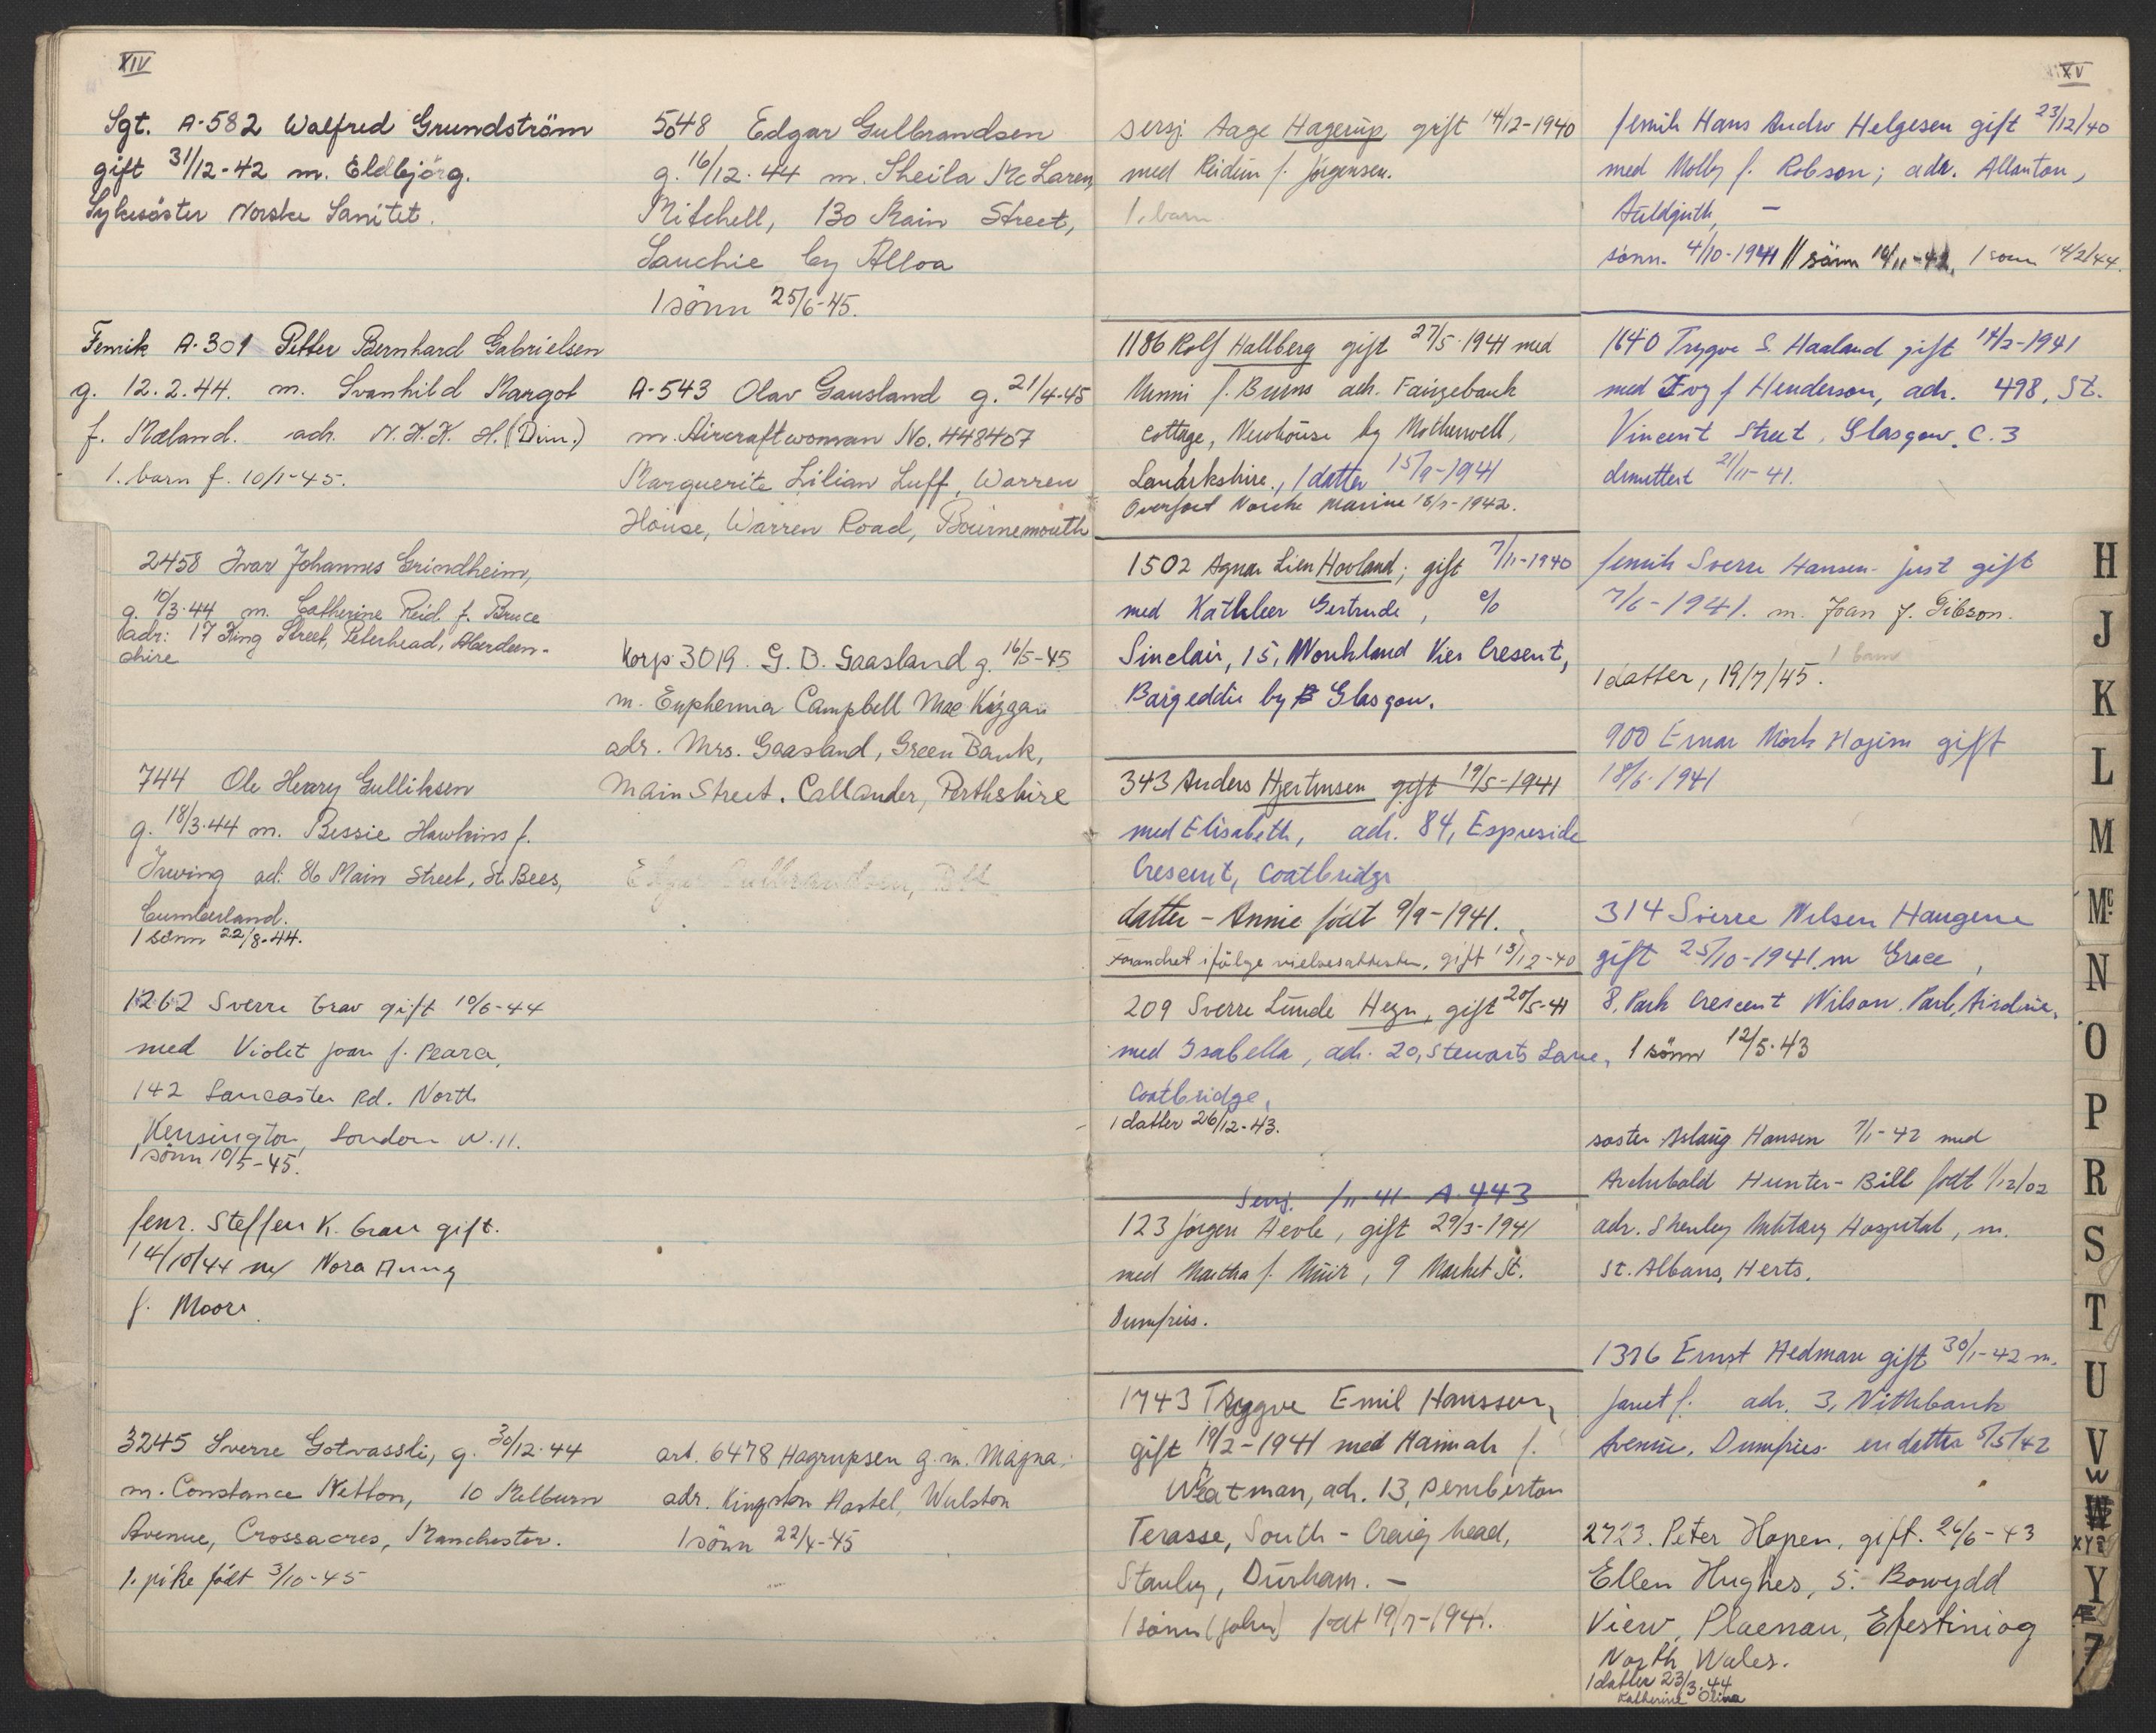 XIV
Sgt. A-582 Walfred Grundström
gift 31/12-42 m. Eldbjörg.
Sykesöster Norske Sanitet.
Fenrik A-301 Petter Bernhard Gabrielsen
g. 12.2.44. m. Svanhild Margot
f. Mæland. adr. N.K.K. H.(Dim.)
1. barn f. 10/1-45.
2458 Ivar Johannes Grindheim,
g. 10/3-44 m. Catherine Reid f. Bruce
adr: 17 King Street, Peterhead, Aberdeen-
shire
744 Ole Henry Gulliksen
g. 18/3-44 m. Bessie Hawkins f.
Irwing ad: 86 Main Street, St. Bees,
Cumberland.
1 sönn 22/8-44.
1262 Sverre Grav gift 10/6-44
med Violet Joan f. Pearce,
142 Lancaster Rd. North
Kensington, London W.11.
1 sönn 10/5-45.
fenr. Steffen K. Grau gift.
14/10/44 m/ Nora Anny
f. Moore.
3245 Sverre Gotvasski, g. 30/12-44
m. Constance Netton, 10 Melburn
Avenue, Crossacres, Manchester.
1. pike født 3/10-45
5048 Edgar Gulbrandsen
g. 16/12-44 m. Sheila McLaren
Mitchell, 130 Main Street,
Sauchie by Alloa
1 sönn 25/6-45.
A-543 Olav Gausland g. 21/4-45
m. Aircraftwoman No. 448407
Marguerite Lilian Luff, Warren
House, Warren Road, Bournemouth
Korp 3019. G.B. Gaasland g. 16/5-45
m. Euphemia Campbell Mac Kiggan
adr. Mrs. Gaasland, Green Bank,
Main Street. Callander, Perthshire
Edgar Gulbrandsen,
art. 6478 Hagrupsen g.m. Magna,
adr. Kingston Hastel, Wulston
1 sönn 22/4-45
XV
sersj Aage Hagerup gift 14/12-1940
med Reidun f. Jörgensen.
1. barn
1186 Rolf Hallberg gift 27/5-1941 med
Minni f. Burns adr. Fairyebank
cottage, Newhouse by Motherwell,
Lanarkshire., 1 datter 15/9-1941
Overfört Norske Marine 18/5-1942.
1502 Agnar Lien Hovland; gift 7/11-1940
med Kathleer Gertrude, c/o
Sinclair, 15, Monkland Vier Cresent,
Bargeddie by Glasgow.
343 Anders Hjertnesen gift 19/5-1941
med Elisabeth, adr. 84, Espieside
Cresemt, Coatbridge
datter - Annie födt 9/9-1941.
Forandret ifölge vielsesattesten, gift 13/12-40
209 Sverre Lunde Hegn, gift 20/5-41
med Isabella, adr. 20, Stewarts Lane,
Coatbridge,
1 datter 26/12-43.
Sersj. 1/11-41 A-443
123 Jörgen Hevle, gift 29/3-1941
med Martha f. Muir, 9 Market St.
Dumfries.
1743 Trygve Emil Hanssen,
gift 19/2-1941 med Hannah f.
Weatman, adr. 13, Pemberton
Terasse, South - Craig head,
Stanley, Durham. -
1 sönn (John) födt 19/7-1941.
fenrik Hans Andr Helgesen gift 23/12/40
med Molly f. Robson; adr. Allanton,
Auldgirth, -
sönn 4/10-1941 // sönn 10/11-42, 1 sönn 14/2/44.
1640 Trygve S. Haaland gift 14/2-1941
med Ivy f Henderson, adr. 498, St.
Vincent Street, Glasgow. C.3
dimittert 21/11-41.
fenrik Sverre Hansen-Just gift
7/6-1941. m. Joan f. Gibson.
1 barn
1 datter, 19/7/45.
900 Einar Mørk Hojem gift
18/6-1941
314 Sverre Nilsen Haugene
gift 25/10-1941. m Grace,
8, Park Crescent Wilson Park, Airdrie,
1 sönn 12/5-43
søster Aslaug Hansen 7/1-42 med
Archibald Hunter-Bill født 1/12/02
adr. Shenley Military Hospital, m.
St. Albans, Herts.
1376 Ernst Hedman gift 30/1-42 m.
Janet f. adr. 3, Nithbank
Avenue, Dumfries en datter 5/5/42
2723. Peter Hopen, gift. 26/6-43
Ellen Hughes, 5. Bowydd
View, Plaenau, Efestiniog
North Wales.
1 datter 23/3.44
Katherine Olina
H
J
K
L
M
Mc
N
O
P
R
S
T
U
V
W
W
XYZ
Y
Æ
7